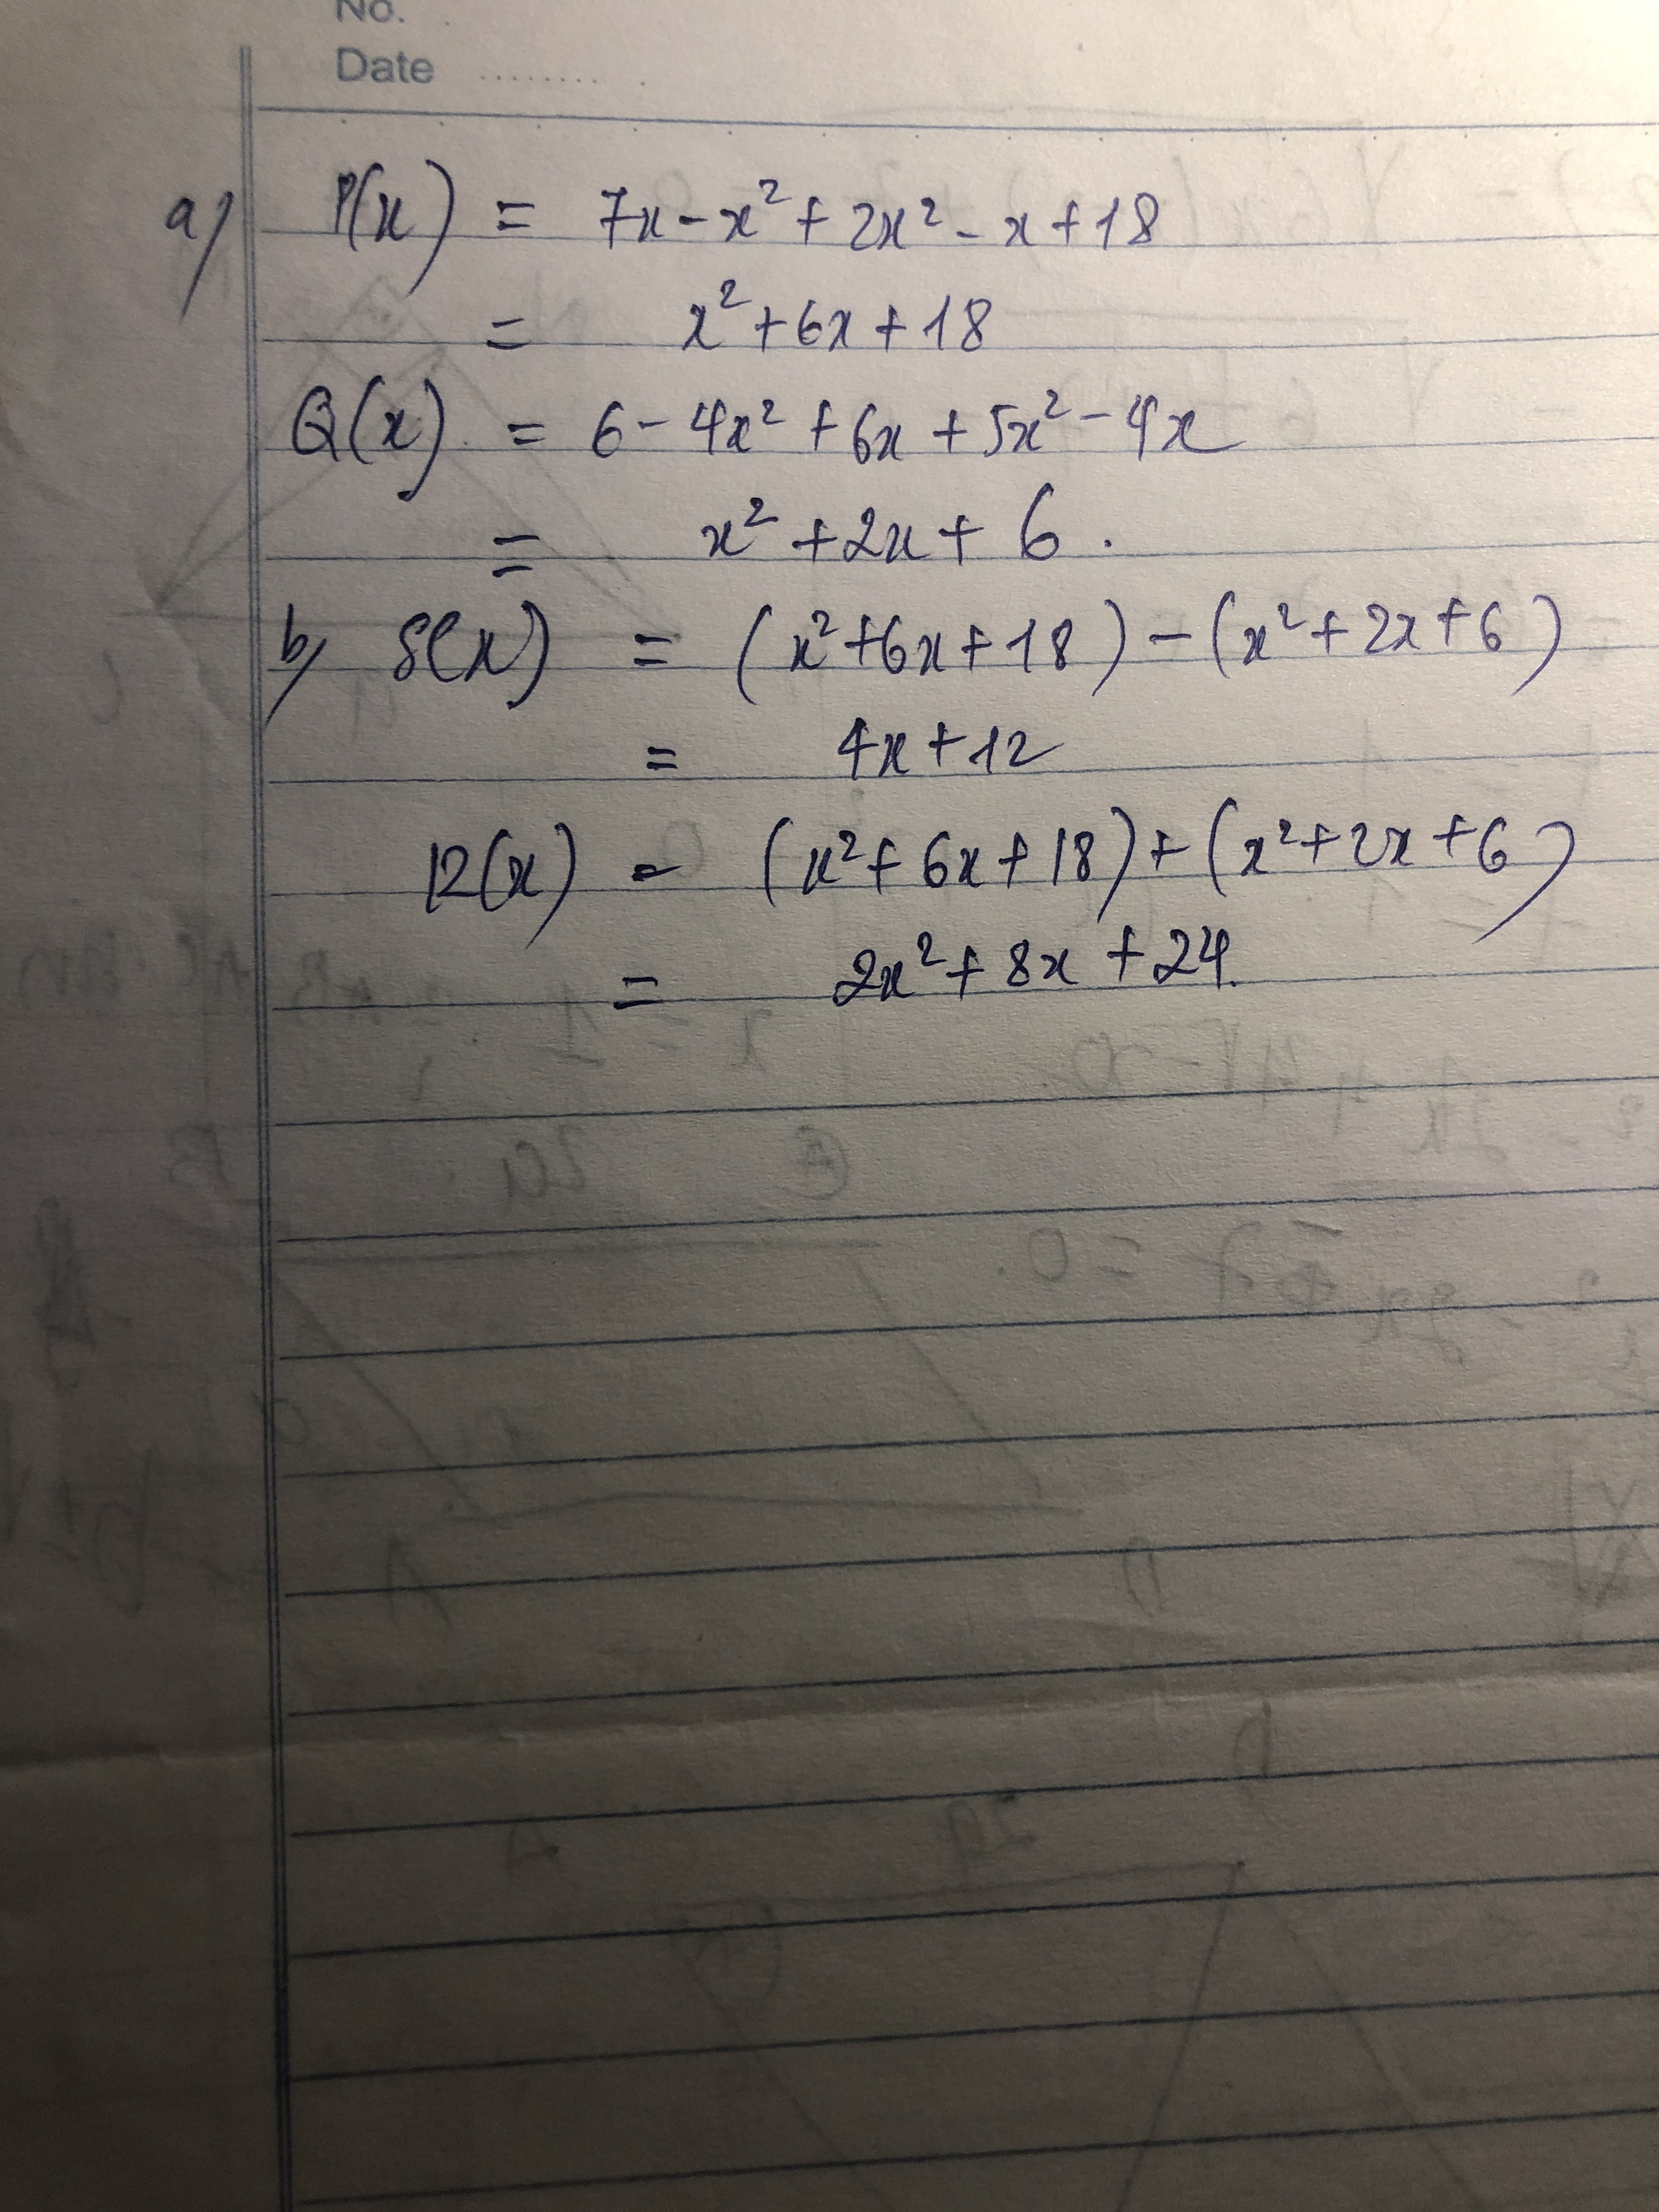 No.
Date ........
a/ P(x) = 7x - x² + 2x² - x + 18
= x² + 6x + 18
Q(x) = 6 - 4x² + 6x + 5x² - 4x
= x² + 2x + 6.
b/ S(x) = (x² + 6x + 18) - (x² + 2x + 6)
= 4x + 12
R(x) = (x² + 6x + 18) + (x² + 2x + 6)
= 2x² + 8x + 24.